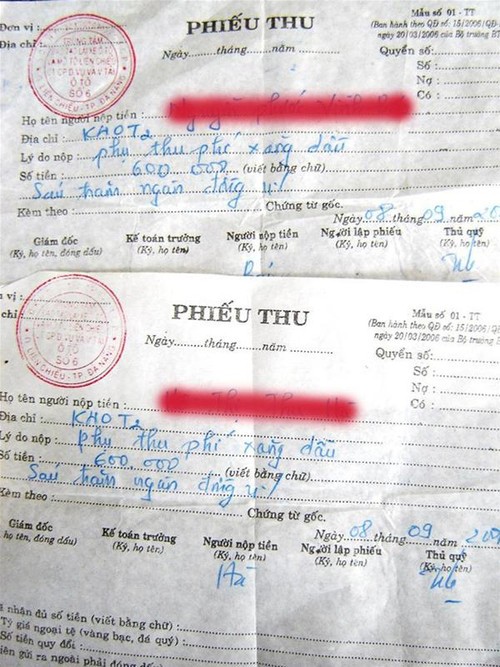 Đơn vị :
PHIẾU THU
Mẫu số 01 - TT
Địa chỉ :
(Ban hành theo QĐ số : 15/2006/QĐ-
ngày 20/03/2006 của Bộ trưởng BT
Ngày......tháng......năm
Quyển số:
Số :
Nợ :
Có :
ÔTÔ
SỐ 6
LIÊN CHIỂU-TP ĐÀ NẴNG
Họ tên người nộp tiền :
Địa chỉ : KHOT2
Lý do nộp : phụ thu phí xăng dầu
Số tiền : 600 000 (viết bằng chữ)
Sáu trăm ngàn đồng y/
Kèm theo : Chứng từ gốc.
Ngày 08 tháng 09 năm 20
Giám đốc Kế toán trưởng Người nộp tiền Người lập phiếu Thủ quỹ
(Ký, họ tên, đóng dấu) (Ký, họ tên) (Ký, họ tên) (Ký, họ tên) (Ký, họ tên)
n vị :
PHIẾU THU
Mẫu số 01 - TT
chỉ :
(Ban hành theo QĐ số : 15/2006/QĐ
ngày 20/03/2006 của Bộ trưởng B
Ngày......tháng......năm
Quyển số:
Số :
Nợ :
Có :
ÔTÔ
SỐ 6
LIÊN CHIỂU-TP ĐÀ NẴNG
Họ tên người nộp tiền :
Địa chỉ : KHOT2
Lý do nộp : phụ thu phí xăng dầu
Số tiền : 600 000 (viết bằng chữ)
Sáu trăm ngàn đồng y/
Kèm theo : Chứng từ gốc.
Ngày 08 tháng 09 200
Giám đốc Kế toán trưởng Người nộp tiền Người lập phiếu Thủ quỹ
họ tên, đóng dấu) (Ký, họ tên) (Ký, họ tên) (Ký, họ tên) (Ký, họ tên)
Hà
nhận đủ số tiền (viết bằng chữ) :
Tỷ giá ngoại tệ (vàng bạc, đá quý) :
Số tiền quy đổi :
iên gửi ra ngoài phải đóng dấu